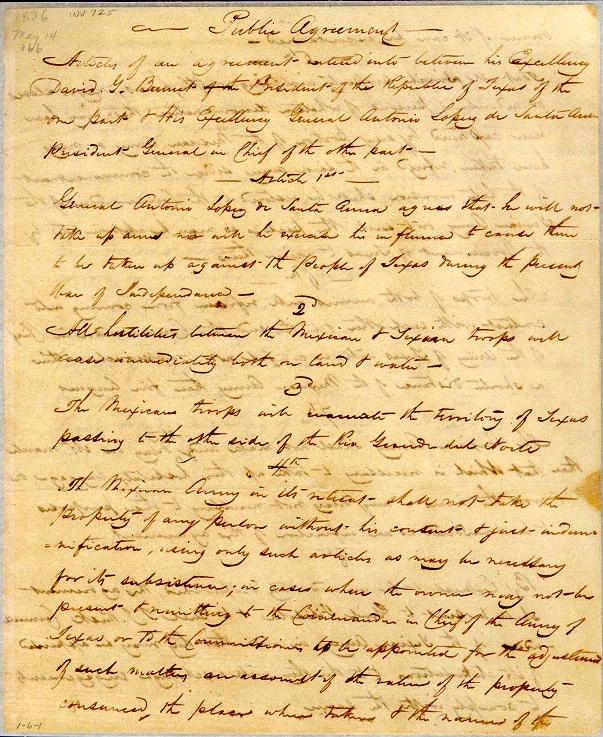 1836 INV 725
May 14
266
Public Agreement
Articles of an agreement entered into between his Excellency
David G. Burnet of the President of the Republic of Texas of the
one part & His Excellency General Antonio Lopez de Santa Anna
President General in Chief of the other part —
Article 1st
General Antonio Lopez de Santa Anna agrees that he will not
take up arms nor will he exercise his influence to cause them
to be taken up against the People of Texas during the present
War of Independence —
2d
All hostilities between the Mexican & Texian troops will
cease immediately both on land & water —
3d
The Mexican troops will evacuate the territory of Texas
passing to the other side of the Rio Grande del Norte
4th
The Mexican Army in its retreat shall not take the
property of any person without his consent & just indem
-nification, using only such articles as may be necessary
for its subsistence, in cases where the owner may not be
present & remitting to the Commander in Chief of the Army of
Texas or to the Commissioner to be appointed for the adjustment
of such matters an account of the value of the property
consumed, the place where taken & the name of the
1-6-1